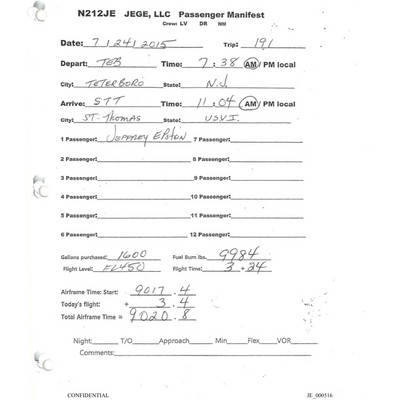 N212JE JEGE, LLC Passenger Manifest
Crew: LV DR NM
Date: 7/24/2015 Trip: 191
Depart: TEB Time: 7:38 AM/ PM local
City: TETERBORO State: N.J.
Arrive: STT Time: 11:04 AM/ PM local
City: ST. Thomas State: USVI.
1 Passenger: JEFFREY EPSTON 7 Passenger:
2 Passenger: 8 Passenger:
3 Passenger: 9 Passenger:
4 Passenger: 10 Passenger:
5 Passenger: 11 Passenger:
6 Passenger: 12 Passenger:
Gallons purchased: 1600 Fuel Burn lbs. 9984
Flight Level: FL450 Flight Time: 3 + 24
Airframe Time: Start: 9017.4
Today's flight: + 3.4
Total Airframe Time = 9020.8
Night: T/O Approach Min Flex VOR
Comments:
CONFIDENTIAL JE_000516